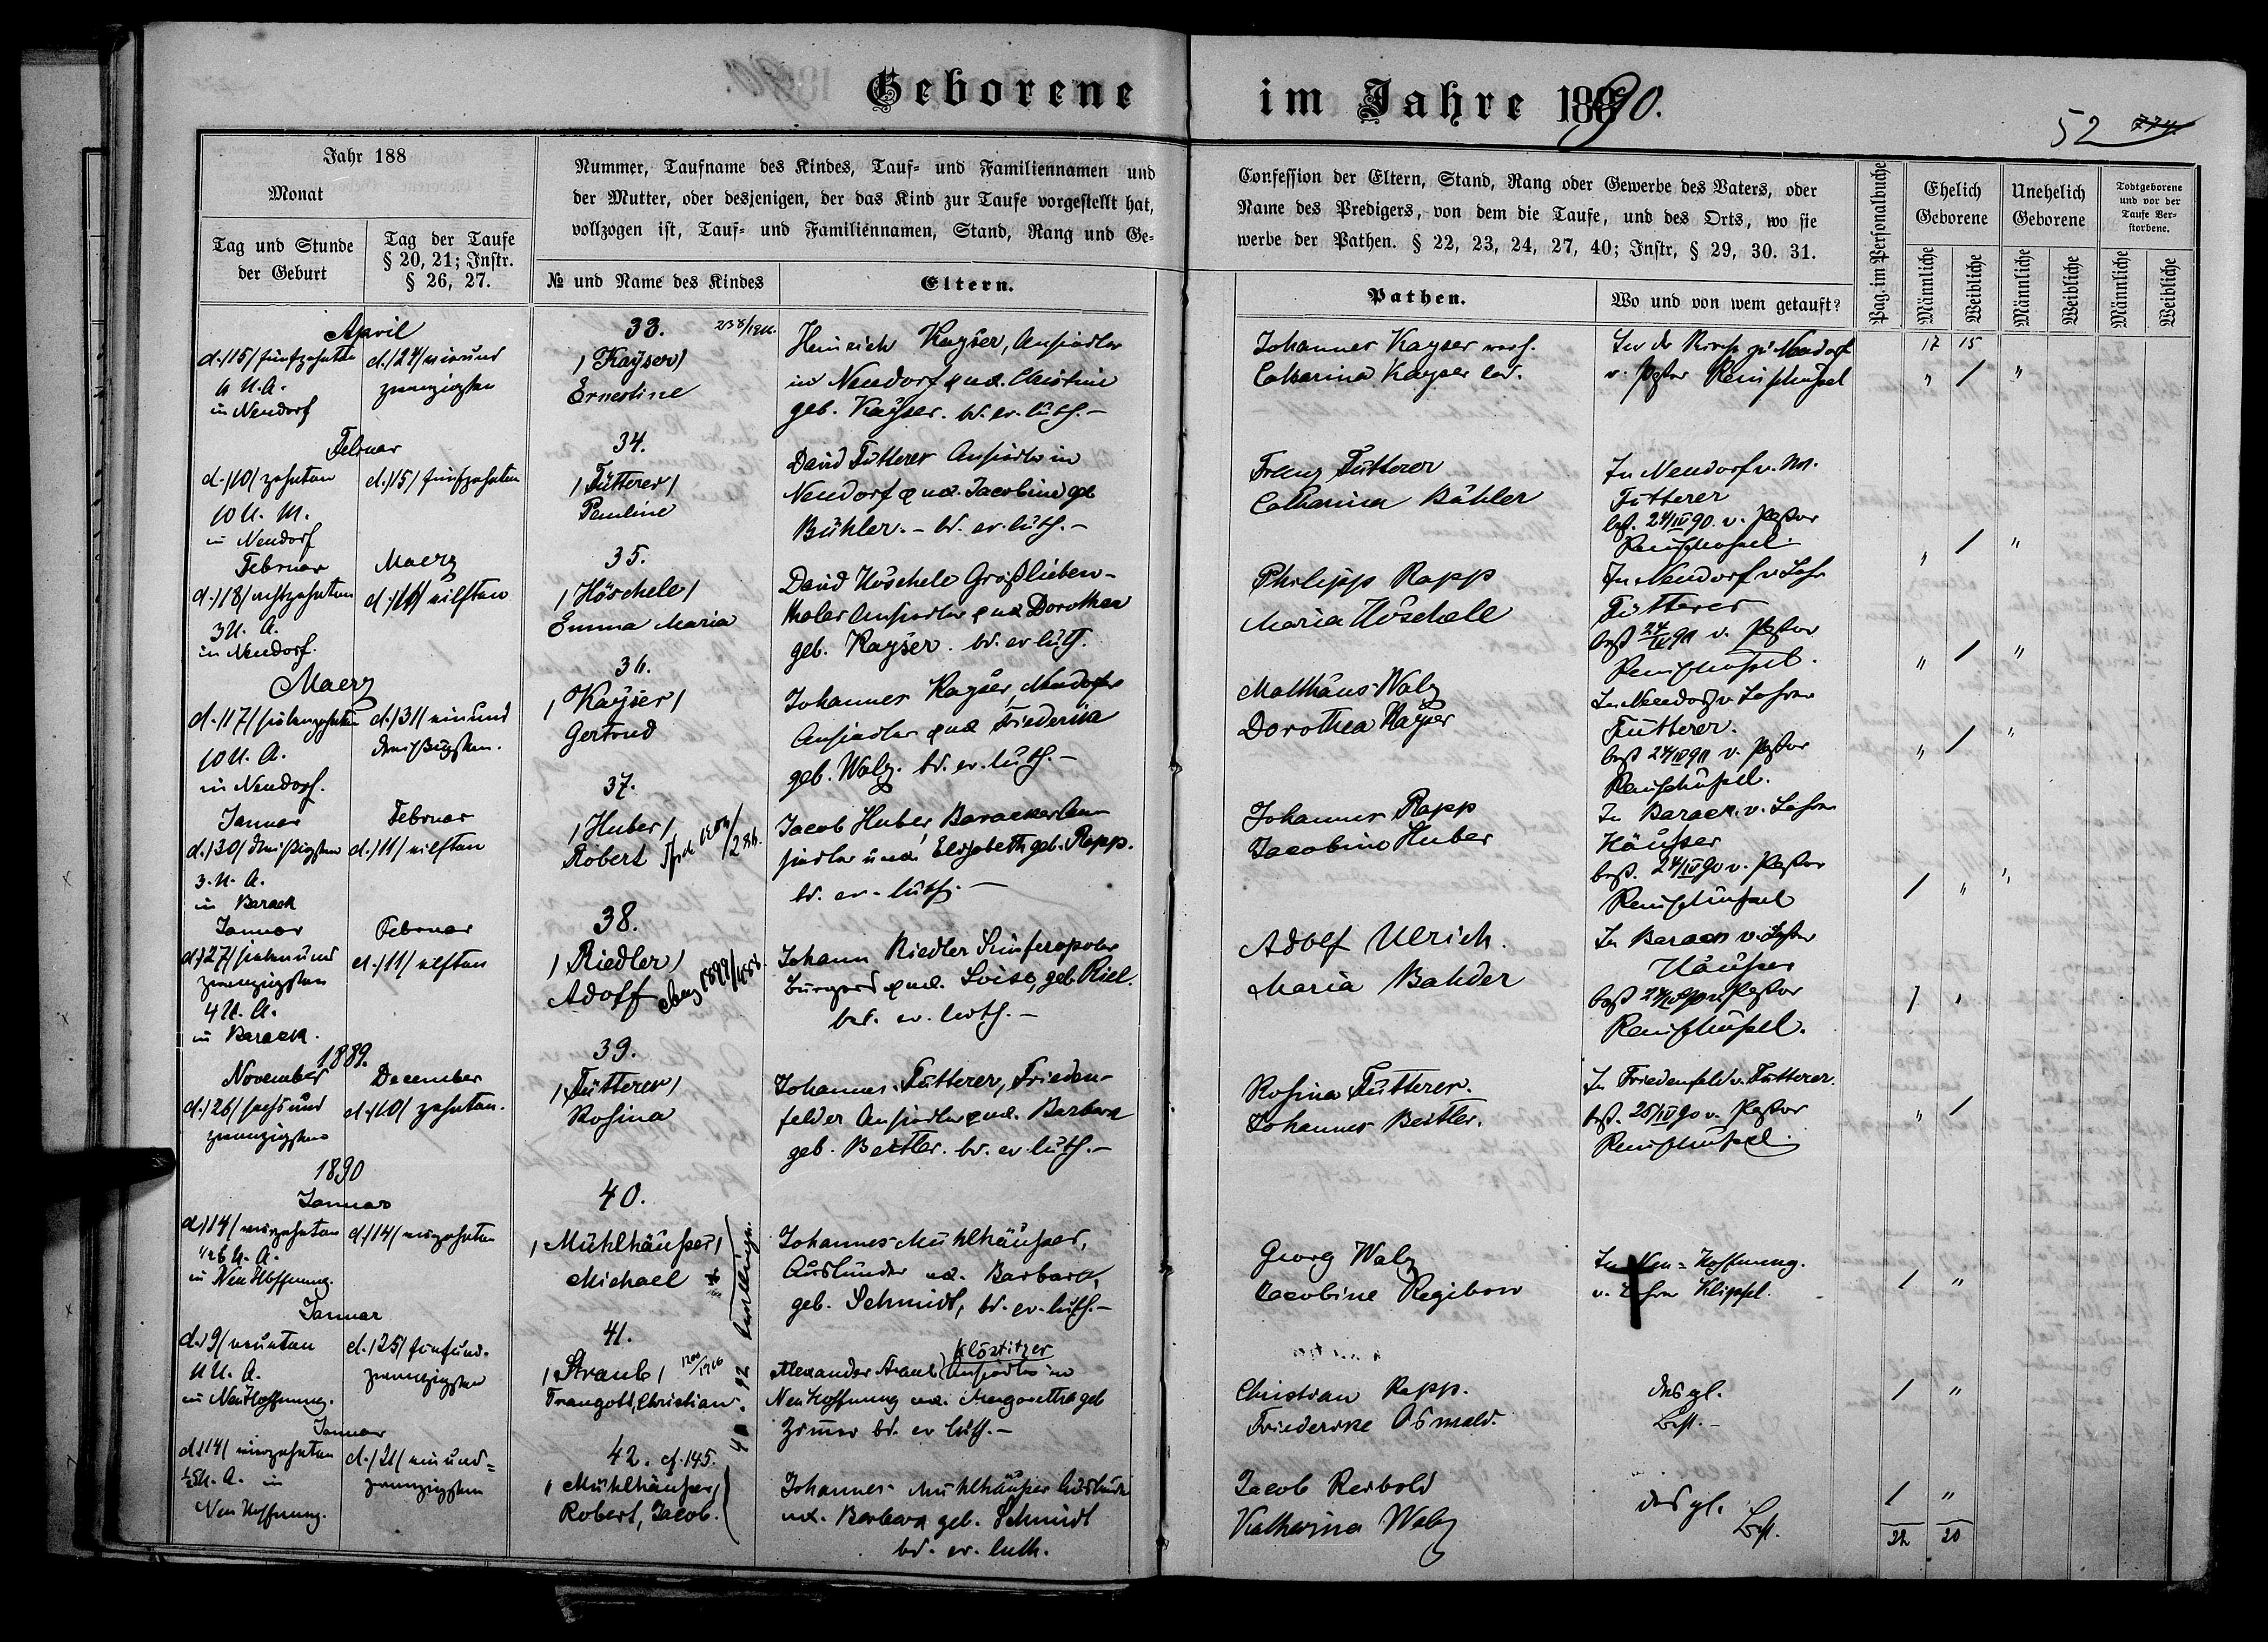 Geborene im Jahre 1890.
52 774.
Jahr 188
Monat
Tag und Stunde
der Geburt
Tag der Taufe
§ 20, 21; Instr.
§ 26, 27.
Nummer, Taufname des Kindes, Tauf- und Familiennamen und
der Mutter, oder desjenigen, der das Kind zur Taufe vorgestellt hat,
vollzogen ist, Tauf- und Familiennamen, Stand, Rang und Ge-
№ und Name des Kindes
Eltern.
Confession der Eltern, Stand, Rang oder Gewerbe des Vaters, oder
Name des Predigers, von dem die Taufe, und des Orts, wo sie
werbe der Pathen. § 22, 23, 24, 27, 40; Instr, § 29, 30. 31.
Pathen.
Wo und von wem getauft?
Pag. im Personalbuche
Ehelich
Geborene
Unehelich
Geborene
Todtgeborene
und vor der
Taufe Ver-
storbene.
Männliche
Weibliche
Männliche
Weibliche
Männliche
Weibliche
April
d. /15/ fünfzehnten
11 U. A.
in Neudorf
d. /24/ vierund
zwanzigsten
33.
/Kayser/
Ernestine
Heinrich Kayser, Ansiedler
in Neudorf und Christine
geb. Kayser. bd. ev. luth. –
Johannes Kayser
Catharina Kayser led.
In der Kirche zu Neudorf
v. Pastor
17 15
" / "
Februar
d. /10/ zehnten
10 U. M.
in Neudorf
d. /15/ fünfzehnten
34.
/Fütterer/
Pauline
David Fütterer Ansiedler in
Neudorf und Jacobine geb
Bühler. – bd. ev. luth. –
Franz Fütterer
Catharina Bühler
In Neudorf v.
Fütterer
best. 24/IV 90. v. Pastor
" / "
Februar
d. /18/ achtzehnten
3 U. A.
in Neudorf.
Maerz
d. /11/ eilften
35.
/Höschele/
Emma Maria
David Höschele Großlieben-
thaler Ansiedler und Dorothea
geb. Kayser. bd. ev luth.
Philipp Rapp
Maria Höschele
In Neudorf v. Lehr
Fütterer
best 24/IV 90 v. Pastor
" / "
Maerz
d. /17/ siebenzehnten
10 U. A.
in Neudorf.
d. /31/ einund
dreißigsten.
36.
/Kayser/
Gertrud
Johannes Kayser, Neudorfer
Ansiedler und Friederika
geb. Walz. bd. ev. luth. –
Matthäus Walz
Dorothea Kayser
In Neudorf v. Lehrer
Fütterer.
best 24/IV 90 v. Pastor
" / "
Januar
d. /30/ dreißigsten
3. U. A.
in Barack
Februar
d. /11/ eilften
37.
/Huber/
Robert
Jacob Huber, Baracker An-
siedler und Elisabeth geb. Rapp.
bd. ev. luth. –
Johannes Rapp
Jacobine Huber
In Barack. v. Lehrer
Häußer
best. 24/IV 90 v. Pastor
/ " "
Januar
d. /27/ siebenund
zwanzigsten
4 U. A.
in Barack.
Februar
d. /11/ elften
38.
/Riedler/
Adolf
Johann Riedler Simferopoler
Bürger und Loise, geb. Riel.
bd. ev. luth. –
Adolf Ulrich.
Maria Bahder
In Barack v. Lehrer
Häußer
best 24/IV 90 v. Pastor
1889.
November
d. /26/ sechsund
zwanzigsten
December
d. /10/ zehnten.
39.
/Fütterer/
Rosina
Johannes Fütterer, Frieden-
felder Ansiedler und Barbara
geb. Bestler. bd. ev. luth. –
Rosina Fütterer.
Johannes Bestler.
In Friedenfeld v. Fütterer.
best. 25/IV 90 v. Pastor
" /
1890
Januar
d. /14/ vierzehnten
in Neu Hoffnung.
d. /14/ vierzehnten
40.
/Mühlhäußer/
Michael
Johannes Mühlhäußer,
Ausländer und Barbara,
geb. Schmidt, bd. ev. luth. –
Georg Walz
Jacobine
In Neu-Hoffnung.
v. Lehrer Klipfel.
/ "
Januar
d. /9/ neunten
11 U. A.
in Neu Hoffnung.
d. /25/ fünfund-
zwanzigsten
41.
/Straub/
Traugott, Christian.
Klöstitzer
Alexander Straub Ansiedler in
Neu Hoffnung und Margaretha geb
bd. ev luth. –
Christian Rapp.
Friedericke Oswald.
desgl.
Best. –
/ "
Januar
d. /14/ vierzehnten
Neu Hoffnung.
d. /21/ einund-
zwanzigsten
42. cf. 145.
/Mühlhäußer/
Robert, Jacob.
Johannes Mühlhäußer Ausländer
und Barbara geb. Schmidt
bd. ev. luth.
Jacob Reibold
Katharina Walz
desgl.
Best.
/ "
22 20